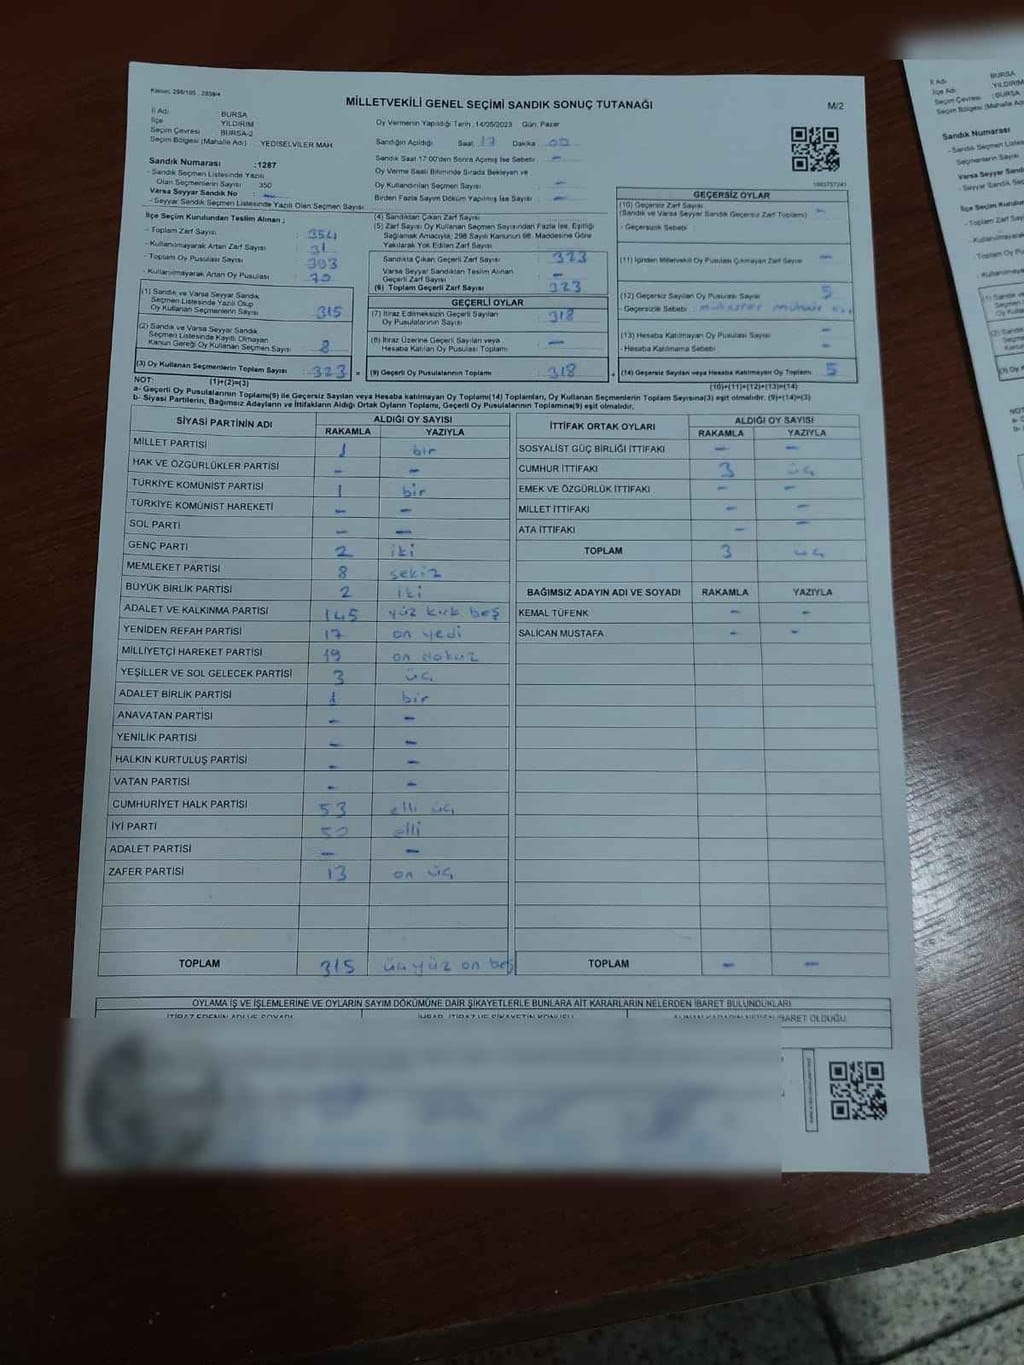 Kanun: 298/105 , 2839/4
MİLLETVEKİLİ GENEL SEÇİMİ SANDIK SONUÇ TUTANAĞI
M/2
İl Adı BURSA
İlçe YILDIRIM
Seçim Çevresi BURSA-2
Seçim Bölgesi (Mahalle Adı) : YEDISELVİLER MAH.
Sandık Numarası :1287
- Sandık Seçmen Listesinde Yazılı
Olan Seçmenlerin Sayısı 350
Varsa Seyyar Sandık No : -
- Seyyar Sandık Seçmen Listesinde Yazılı Olan Seçmen Sayısı
Oy Vermenin Yapıldığı Tarih : 14/05/2023 Gün: Pazar
Sandığın Açıldığı Saat 17 Dakika 00
Sandık Saat 17:00'den Sonra Açılmış İse Sebebi : -
Oy Verme Saati Bitiminde Sırada Bekleyen ve
Oy Kullandırılan Seçmen Sayısı : -
Birden Fazla Sayım Döküm Yapılmış İse Sayısı : -
İlçe Seçim Kurulundan Teslim Alınan ;
- Toplam Zarf Sayısı : 354
- Kullanılmayarak Artan Zarf Sayısı : 31
- Toplam Oy Pusulası Sayısı : 393
- Kullanılmayarak Artan Oy Pusulası : 70
(1) Sandık ve Varsa Seyyar Sandık
Seçmen Listesinde Yazılı Olup
Oy Kullanan Seçmenlerin Sayısı : 315
(2) Sandık ve Varsa Seyyar Sandık
Seçmen Listesinde Kayıtlı Olmayan
Kanun Gereği Oy Kullanan Seçmen Sayısı : 8
(3) Oy Kullanan Seçmenlerin Toplam Sayısı : 323 =
(4) Sandıktan Çıkan Zarf Sayısı
(5) Zarf Sayısı Oy Kullanan Seçmen Sayısından Fazla İse, Eşitliği
Sağlamak Amacıyla, 298 Sayılı Kanunun 98. Maddesine Göre
Yakılarak Yok Edilen Zarf Sayısı
Sandıkta Çıkan Geçerli Zarf Sayısı : 323
Varsa Seyyar Sandıktan Teslim Alınan
Geçerli Zarf Sayısı : -
(6) Toplam Geçerli Zarf Sayısı : 323
GEÇERLİ OYLAR
(7) İtiraz Edilmeksizin Geçerli Sayılan
Oy Pusulalarının Sayısı : 318
(8) İtiraz Üzerine Geçerli Sayılan veya
Hesaba Katılan Oy Pusulası Toplamı : -
(9) Geçerli Oy Pusulalarının Toplamı : 318 +
1003757241
GEÇERSİZ OYLAR
(10) Geçersiz Zarf Sayısı
(Sandık ve Varsa Seyyar Sandık Geçersiz Zarf Toplamı) : -
- Geçersizlik Sebebi :
(11) İçinden Milletvekili Oy Pusulası Çıkmayan Zarf Sayısı -
(12) Geçersiz Sayılan Oy Pusulası Sayısı : 5
- Geçersizlik Sebebi : mükerrer mühür
(13) Hesaba Katılmayan Oy Pusulası Sayısı : -
- Hesaba Katılmama Sebebi : -
(14) Geçersiz Sayılan veya Hesaba Katılmayan Oy Toplamı : 5
NOT: (1)+(2)=(3)
(10)+(11)+(12)+(13)=(14)
a- Geçerli Oy Pusulalarının Toplamı(9) ile Geçersiz Sayılan veya Hesaba katılmayan Oy Toplamı(14) Toplamları, Oy Kullanan Seçmenlerin Toplam Sayısına(3) eşit olmalıdır. (9)+(14)=(3)
b- Siyasi Partilerin, Bağımsız Adayların ve İttifakların Aldığı Ortak Oyların Toplamı, Geçerli Oy Pusulalarının Toplamına(9) eşit olmalıdır.
SİYASİ PARTİNİN ADI ALDIĞI OY SAYISI
RAKAMLA YAZIYLA
MİLLET PARTİSİ 1 bir
HAK VE ÖZGÜRLÜKLER PARTİSİ - -
TÜRKİYE KOMÜNİST PARTİSİ 1 bir
TÜRKİYE KOMÜNİST HAREKETİ - -
SOL PARTİ - -
GENÇ PARTİ 2 iki
MEMLEKET PARTİSİ 8 sekiz
BÜYÜK BİRLİK PARTİSİ 2 iki
ADALET VE KALKINMA PARTİSİ 145 yüz kırk beş
YENİDEN REFAH PARTİSİ 17 on yedi
MİLLİYETÇİ HAREKET PARTİSİ 19 on dokuz
YEŞİLLER VE SOL GELECEK PARTİSİ 3 üç
ADALET BİRLİK PARTİSİ 1 bir
ANAVATAN PARTİSİ - -
YENİLİK PARTİSİ - -
HALKIN KURTULUŞ PARTİSİ - -
VATAN PARTİSİ - -
CUMHURİYET HALK PARTİSİ 53 elli üç
İYİ PARTİ 50 elli
ADALET PARTİSİ - -
ZAFER PARTİSİ 13 on üç
TOPLAM 315 üçyüz on beş
İTTİFAK ORTAK OYLARI ALDIĞI OY SAYISI
RAKAMLA YAZIYLA
SOSYALİST GÜÇ BİRLİĞİ İTTİFAKI - -
CUMHUR İTTİFAKI 3 üç
EMEK VE ÖZGÜRLÜK İTTİFAKI - -
MİLLET İTTİFAKI - -
ATA İTTİFAKI - -
TOPLAM 3 üç
BAĞIMSIZ ADAYIN ADI VE SOYADI RAKAMLA YAZIYLA
KEMAL TÜFENK - -
SALİCAN MUSTAFA - -
TOPLAM - -
OYLAMA İŞ VE İŞLEMLERİNE VE OYLARIN SAYIM DÖKÜMÜNE DAİR ŞİKAYETLERLE BUNLARA AİT KARARLARIN NELERDEN İBARET BULUNDUKLARI
İTİRAZ EDENİN ADI VE SOYADI İHBAR, İTİRAZ VE ŞİKAYETİN KONUSU ALINAN KARARIN NEDEN İBARET OLDUĞU
İl Adı BURSA
İlçe Adı : YILDIRIM
Seçim Çevresi : BURSA
Seçim Bölgesi (Mahalle Adı)
Sandık Numarası